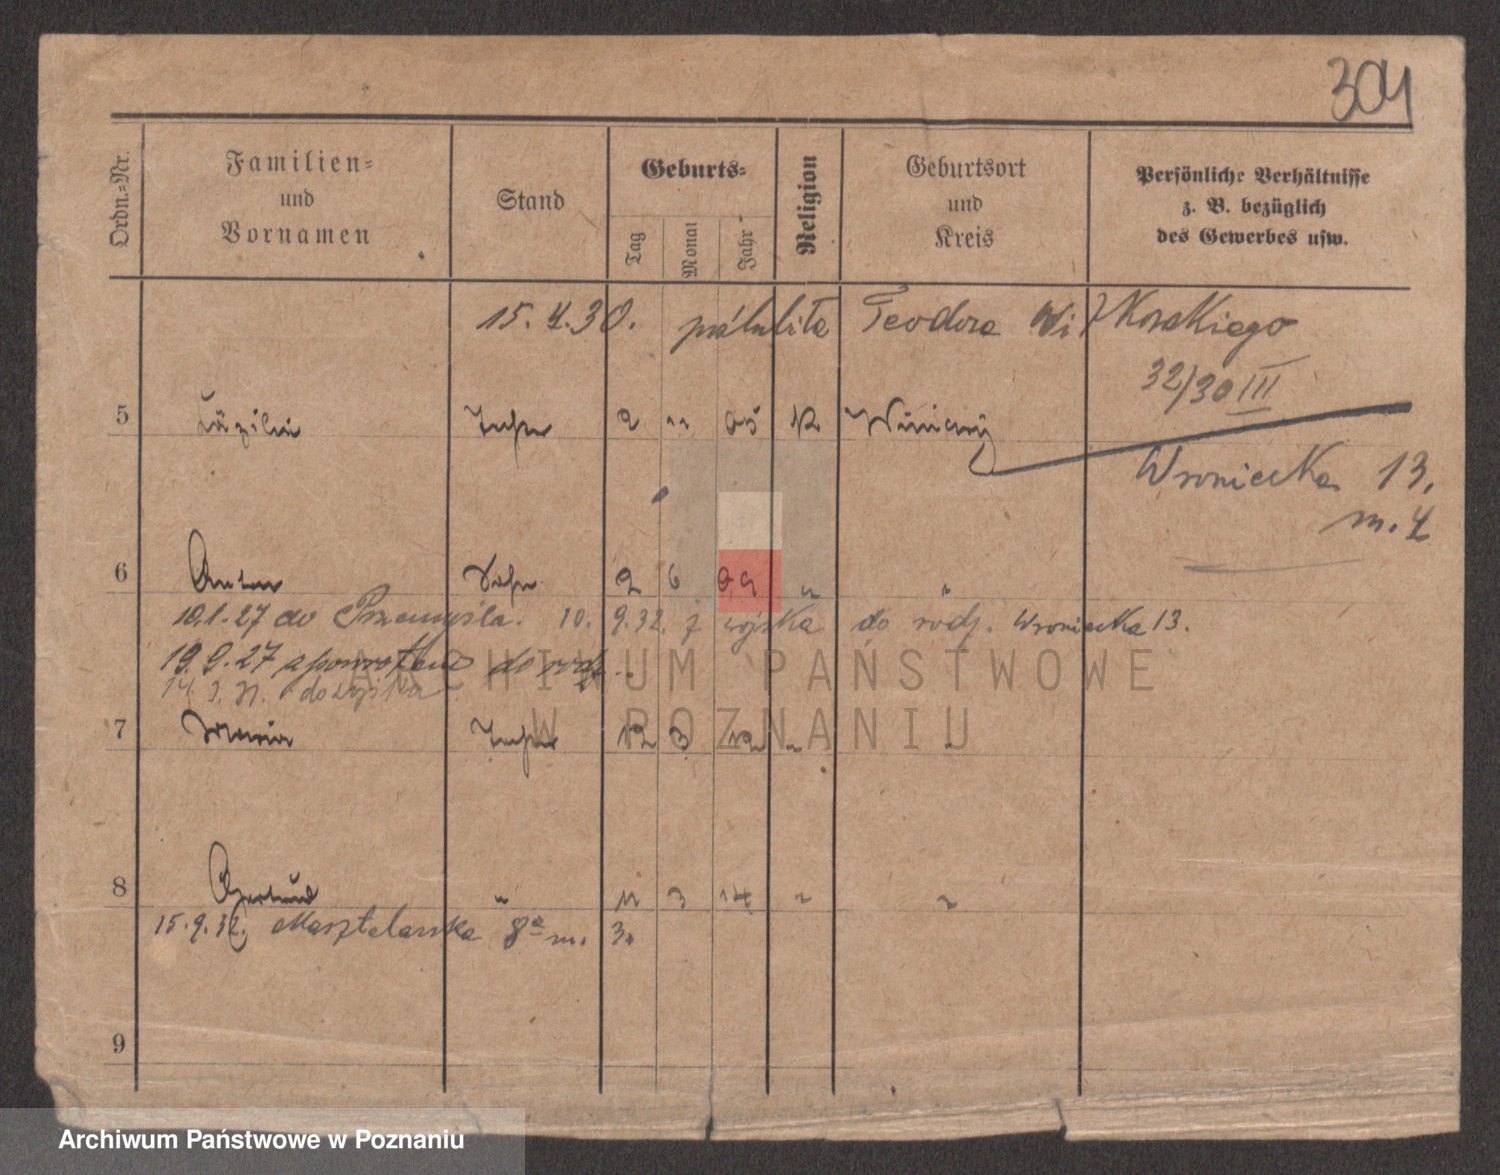 304
Ordn.=Nr.
Familien=
und
Vornamen
Stand
Geburts=
Tag
Monat
Jahr
Religion
Geburtsort
und
Kreis
Persönliche Verhältnisse
z. B. bezüglich
des Gewerbes usw.
15. 4. 30. poślubiła Teodora
32/30 III
5 Tochter 2 11 05 K Winiary
Wroniecka 13.
m. 4
6 Anton Sohn 2 6 09 " "
10.1.27 do Przemyśla. 10. 9.32. z wojska do rodz. Wroniecka 13.
19.9.27 z powrotem do rodz.
do wojska
7 Maria Tochter 12 3 12 "
8 Gertrud " 11 3 14 " "
15.9.32. Masztalarska 8a m. 3.
9
ARCHIWUM PAŃSTWOWE
W POZNANIU
Archiwum Państwowe w Poznaniu